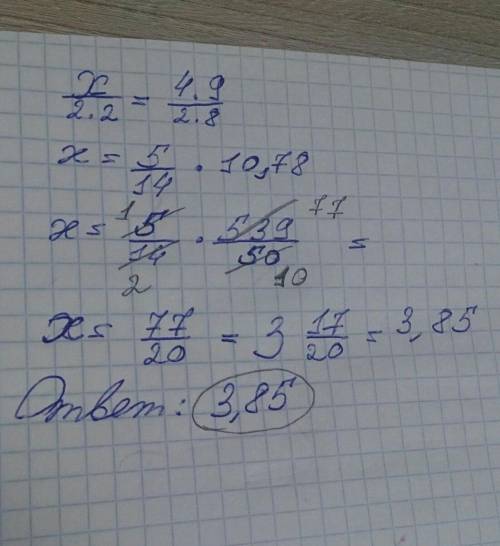 x/2.2 = 4.9/2.8
x = 5/14 · 10,78
x = 5/14 · 539/50 = 1 2 77 10
x = 77/20 = 3 17/20 = 3,85
Ответ: 3,85